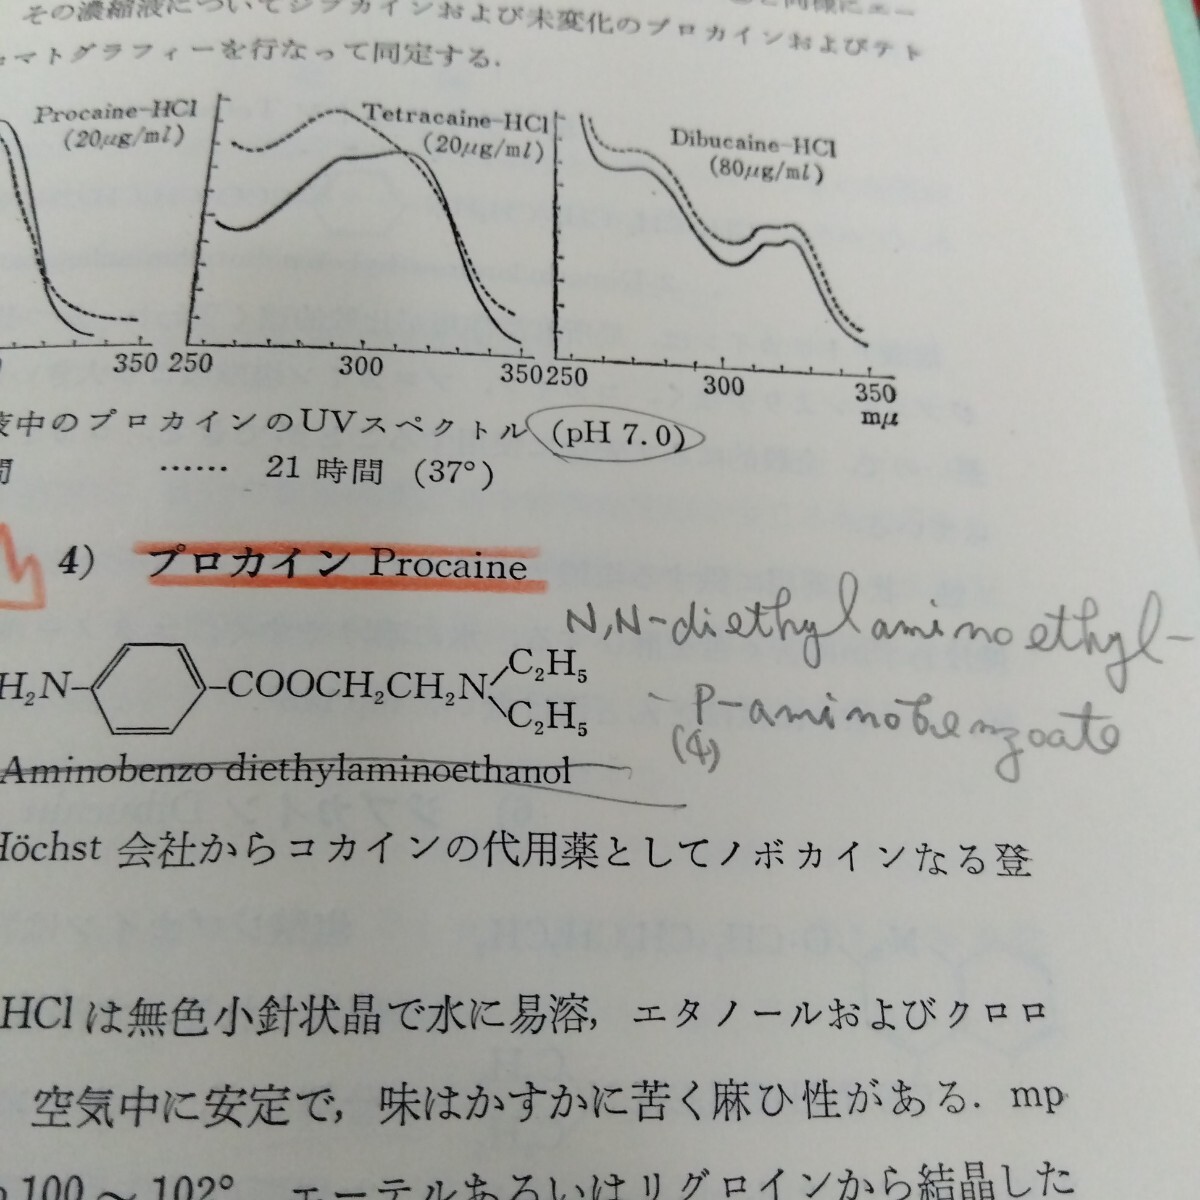 その濃縮液についてジブカインおよび未変化のプロカインおよびテト
マトグラフィーを行なって同定する.
Procaine-HCl
(20μg/ml)
Tetracaine-HCl
(20μg/ml)
Dibucaine-HCl
(80μg/ml)
350 250 300 350 250 300 350
mμ
中のプロカインのUVスペクトル (pH 7.0)
間 …… 21 時間 (37°)
4) プロカイン Procaine
N,N-diethylaminoethyl-
-P-aminobenzoate
(4)
H₂N- -COOCH₂CH₂N
C₂H₅
C₂H₅
Aminobenzo diethylaminoethanol
Höchst 会社からコカインの代用薬としてノボカインなる登
HClは無色小針状晶で水に易溶, エタノールおよびクロロ
空気中に安定で, 味はかすかに苦く麻ひ性がある. mp
100～102°, エーテルあるいはリグロインから結晶した